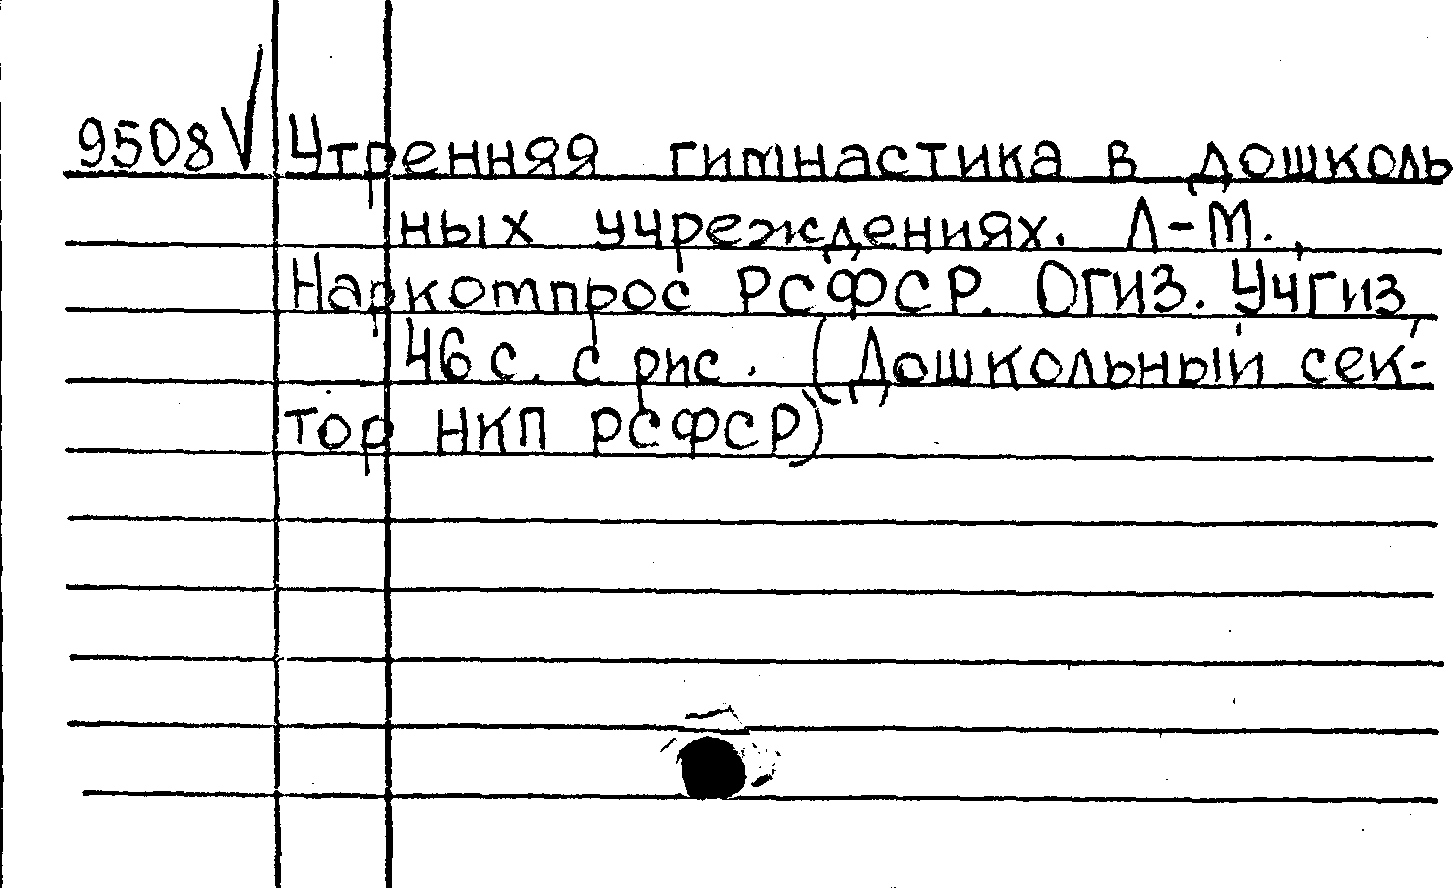 9508 √ Утренняя гимнастика в дошколь
ных учреждениях. Л-М.,
Наркомпрос РСФСР. ОГИЗ. Учгиз,
46 с. с рис. (Дошкольный сек-
тор НКП РСФСР)